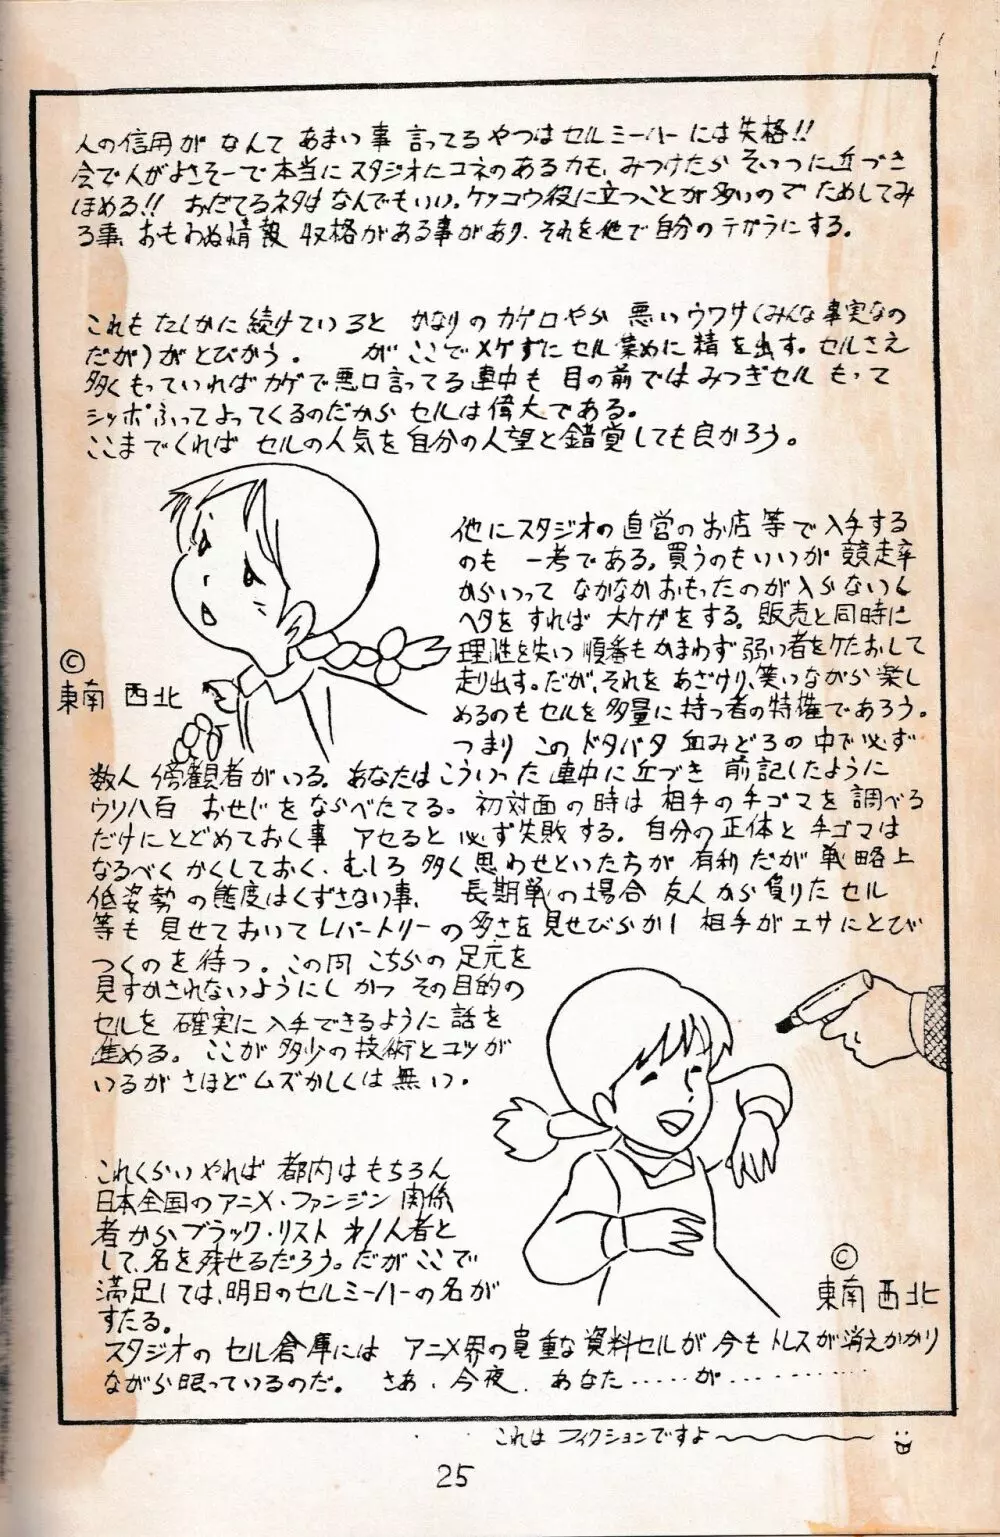 人の信用が なんて あまい事 言ってる やつは セルミーハーには 失格!!
会で人がよさそーで本当にスタジオにコネのあるカモ、みつけたら そいつに近づき
ほめる!! おだてるネタは なんでもいい、ケッコウ役に立つことが多いので ためしてみ
る事、おもわぬ情報 収格がある事があり、それを他で自分のテガラにする。
これもたしかに続けていると かなりの カゲロやら 悪いウワサ(みんな事実なの
だが)がとびかう。 が ここでメゲずに セル集めに 精を出す。セルさえ
多くもっていれば カゲで悪口言ってる連中も 目の前では みつぎセル もって
シッポふってよってくるのだから セルは偉大である。
ここまでくれば セルの人気を自分の人望と錯覚しても良かろう。
他にスタジオの直営のお店等で入手する
のも 一考である。買うのもいいが 競走率
からいって なかなかおもったのが入らないし
ヘタをすれば 大ケガをする。販売と同時に
理性を失い 順番もかまわず 弱い者をけたおして
走り出す。だが、それを あざけり、笑いながら 楽し
めるのも セルを多量に持つ者の特権であろう。
つまり この ドタバタ 血みどろの中で必ず
©
東南 西北
数人 傍観者がいる。あなたは こういった 連中に近づき 前記したように
ウソ八百 おせじを ならべたてる。初対面の時は 相手の手ゴマを調べる
だけにとどめておく事 アセると 必ず失敗する。自分の正体と 手ゴマは
なるべく かくしておく、むしろ 多く思わせといた方が 有利だが 戦略上
低姿勢の態度はくずさない事、 長期戦の場合 友人から借りた セル
等も 見せておいて レパートリーの多さを見せびらかし 相手がエサにとび
つくのを待つ。この間 こちらの 足元を
見すかされないようにし かつ その目的の
セルを 確実に入手できるように 話を
進める。ここが 多少の技術とコツが
いるが さほど ムズかしくは無い。
これくらい やれば 都内はもちろん
日本全国のアニメ・ファンジン関係
者から ブラック・リスト 才1人者と
して、名を残せるだろう。だが ここで
満足しては、明日のセルミーハーの名が
すたる。
©
東南 西北
スタジオの セル倉庫には アニメ界の貴重な資料セルが 今も トレスが消えかかり
ながら眠っているのだ。 さあ、今夜、あなた……が…………
これは フィクションですよ〜
25